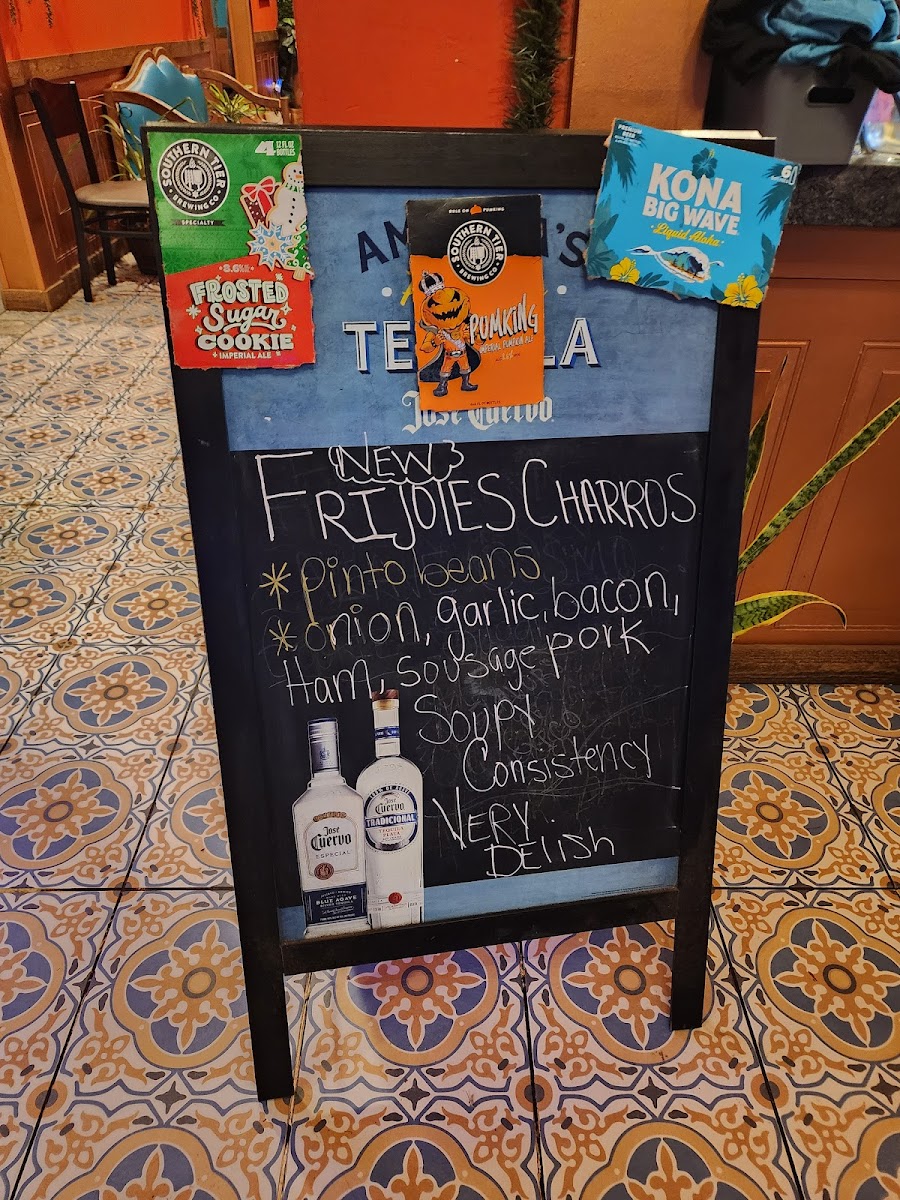 SOUTHERN TIER
BREWING CO
SPECIALTY
4 12 FL OZ BOTTLES
8.6%
FROSTED
Sugar
COOKIE
IMPERIAL ALE
SOUTHERN TIER
BREWING CO
PUMKING
IMPERIAL PUMPKIN ALE
PREMIUM BEER
6
KONA
BIG WAVE
Liquid Aloha
AM 'S
TE LA
Jose Cuervo
NEW
FRIJOLES CHARROS
* pinto beans
* onion, garlic, bacon,
Ham, sousage pork
Soupy
Consistency
VERY
DELISH
Jose
Cuervo
ESPECIAL
BLUE AGAVE
Jose
Cuervo
TRADICIONAL
TEQUILA
PLATA